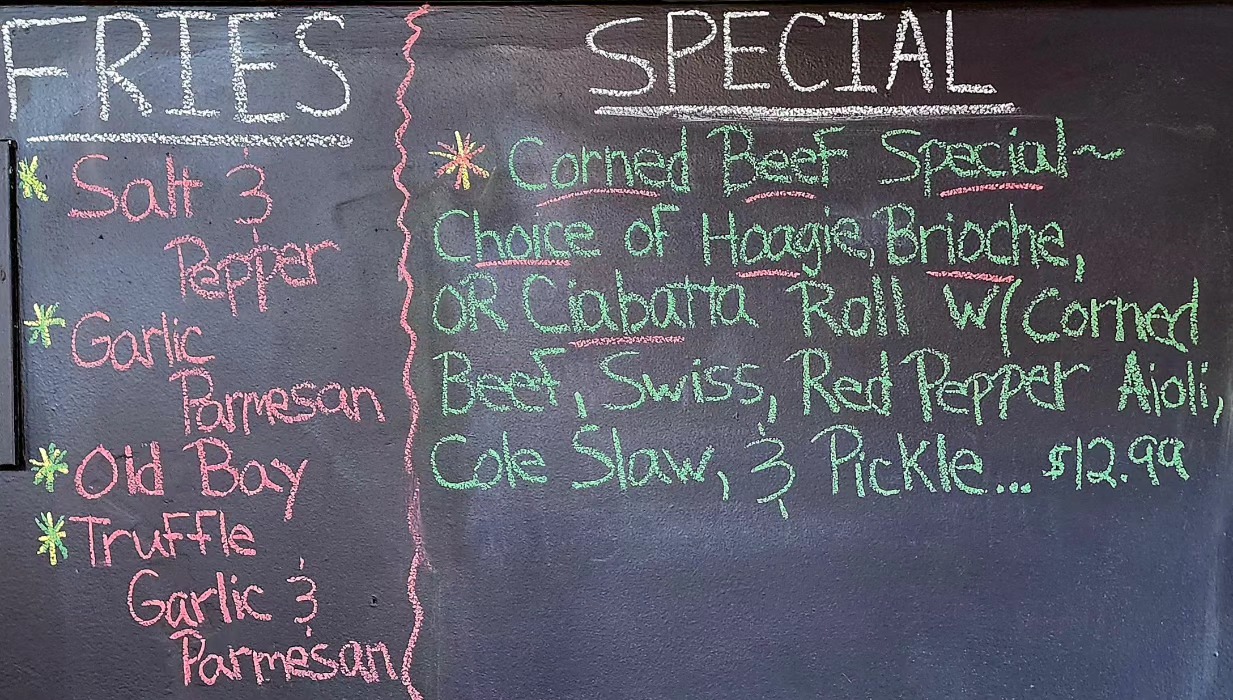 FRIES
Salt &
Pepper
Garlic
Parmesan
Old Bay
Truffle
Garlic &
Parmesan
SPECIAL
Corned Beef Special~
Choice of Hoagie, Brioche,
OR Ciabatta Roll W/Corned
Beef, Swiss, Red Pepper Aioli,
Cole Slaw, & Pickle... $12.99